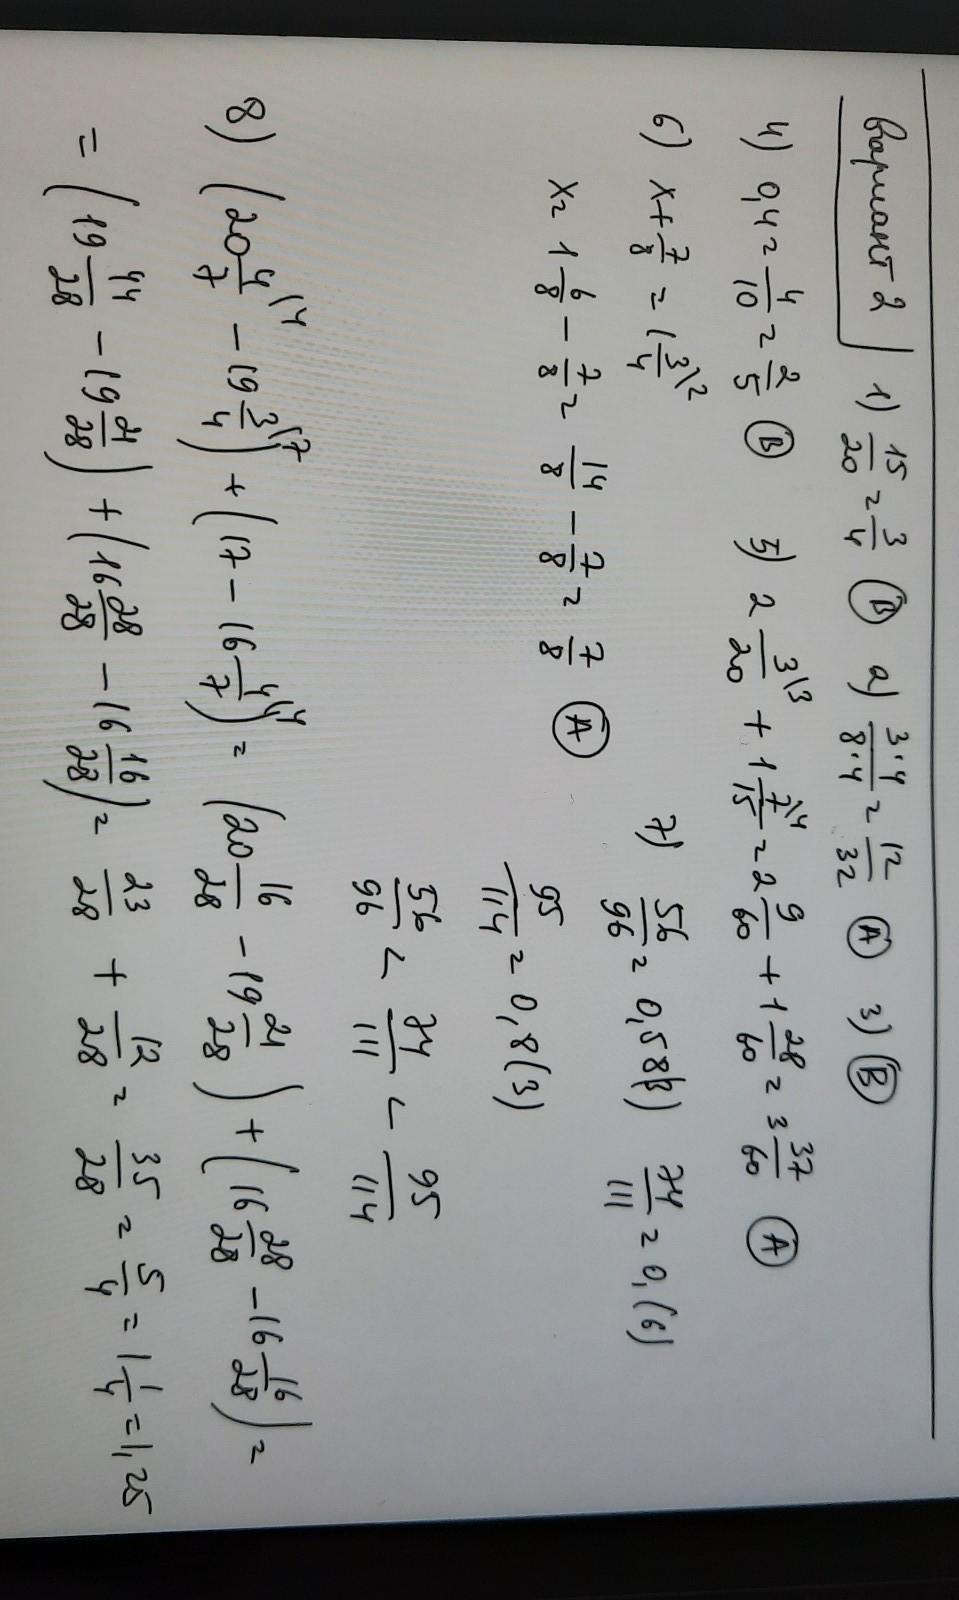 Вариант 2 1) 15/20 = 3/4 (В) 2) 3·4/8·4 = 12/32 (А) 3) (В)
4) 0,4 = 4/10 = 2/5 (В) 5) 2 3\3/20 + 1 7\4/15 = 2 9/60 + 1 28/60 = 3 37/60 (А)
6) x + 7/8 = 1 3\2/4
x = 1 6/8 - 7/8 = 14/8 - 7/8 = 7/8 (А)
7) 56/96 = 0,58(3) 74/111 = 0,(6)
95/114 = 0,8(3)
56/96 < 74/111 < 95/114
8) (20 4\4/7 - 19 3\7/4) + (17 - 16 4\4/7) = (20 16/28 - 19 21/28) + (16 28/28 - 16 16/28) =
= (19 44/28 - 19 21/28) + (16 28/28 - 16 16/28) = 23/28 + 12/28 = 35/28 = 5/4 = 1 1/4 = 1,25